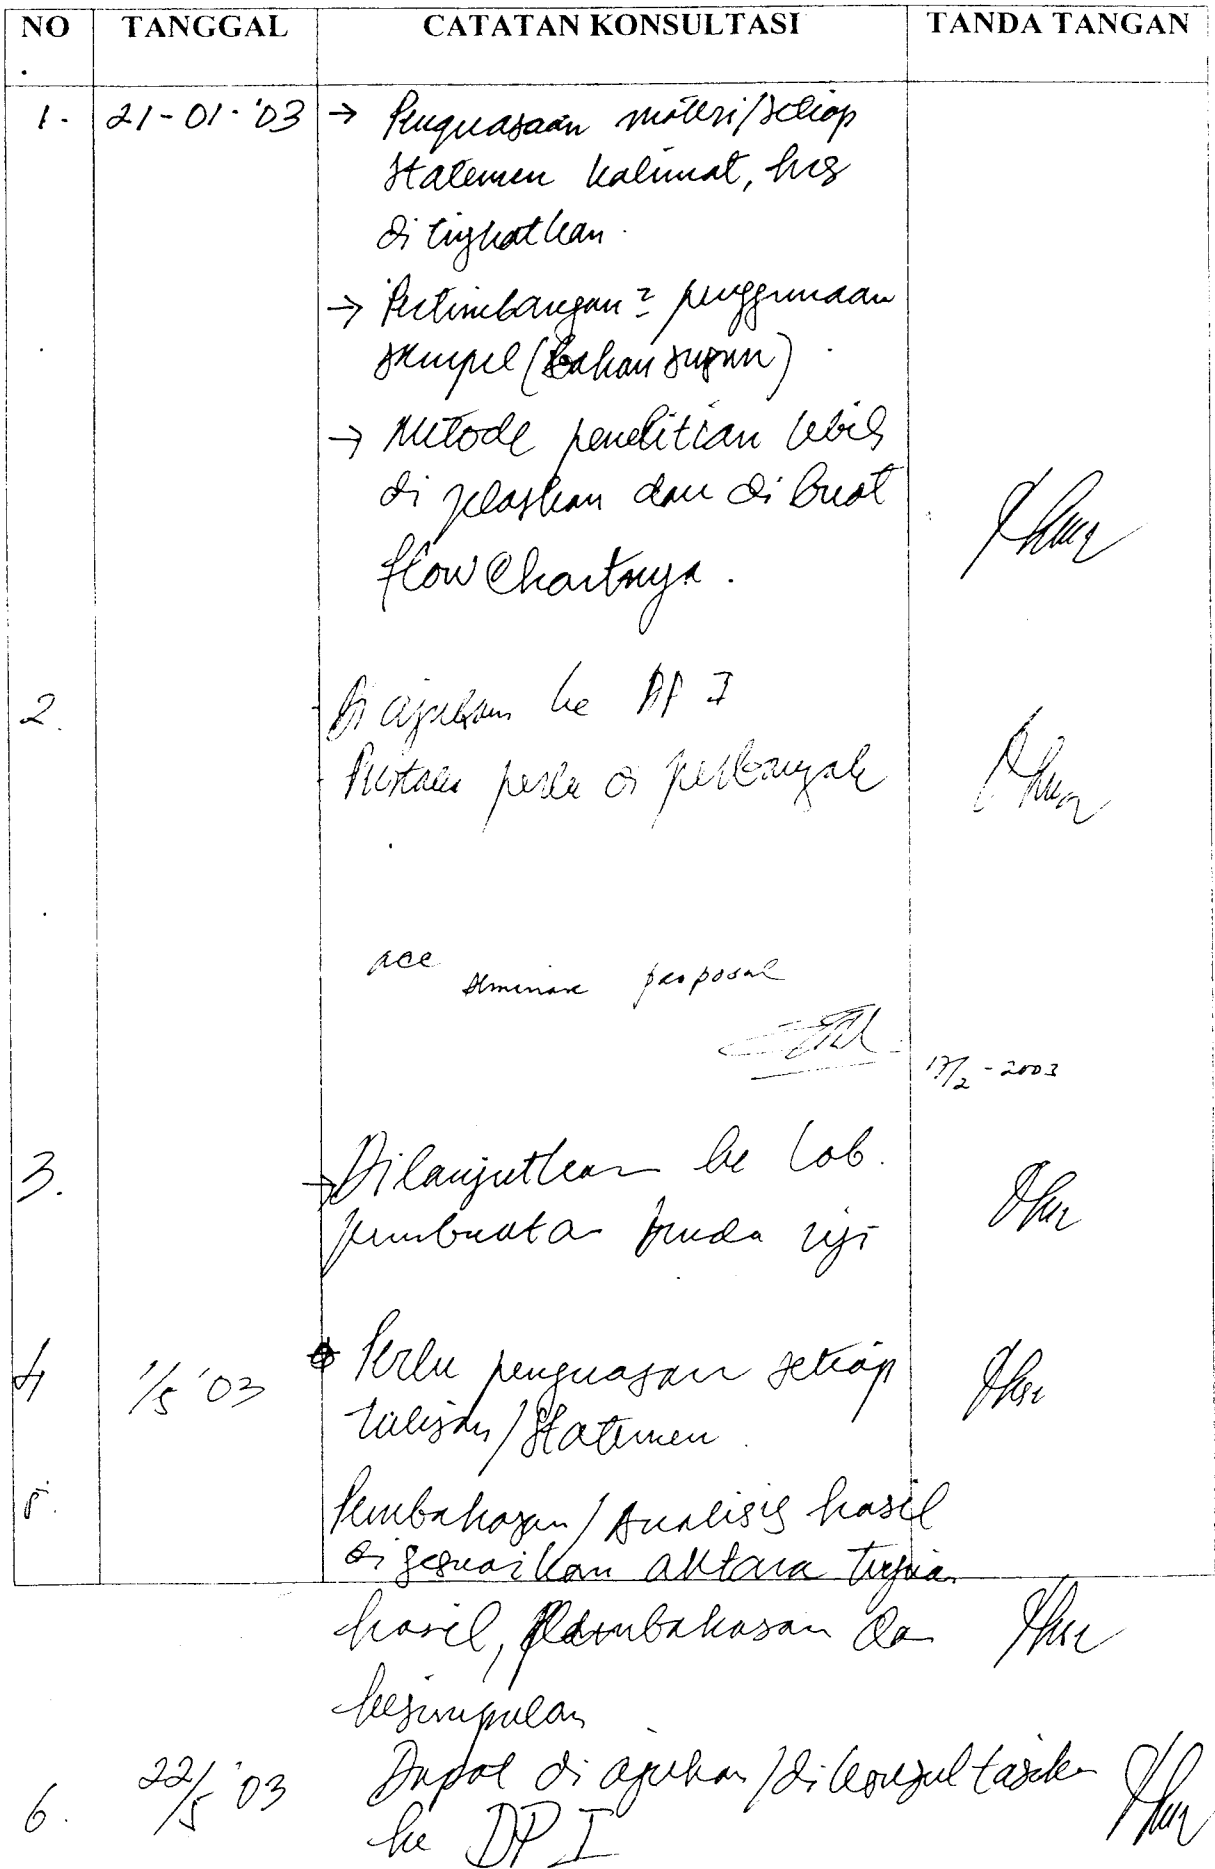 NO TANGGAL CATATAN KONSULTASI TANDA TANGAN
.
1. 21-01-'03 → Penguasaan materi/setiap
statemen kalimat, hrs
di tingkatkan.
→ Pertimbangan2 penggunaan
sampel (bahan susun)
→ Metode penelitian lebih
di jelaskan dan di buat
flow Chartnya.
2. Di ajukan ke DP I
Pustaka perlu di perbanyak
acc seminar proposal
17/2 - 2003
3. → Dilanjutkan ke Lab.
pembuatan benda uji
4 1/5 '03 Perlu penguasaan setiap
tulisan/statemen.
5. Pembahasan/Analisis hasil
di sesuaikan antara tujuan
hasil, Pembahasan dan
kesimpulan
6. 22/5 '03 Dapat di ajukan/di konsultasikan
ke DP I